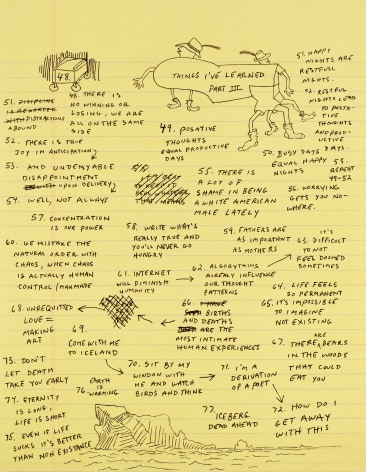 48.
THINGS I'VE LEARNED
PART III
48. THERE IS
NO WINNING OR
LOSING, WE ARE
ALL ON THE SAME
SIDE
49. POSATIVE
THOUGHTS
EQUAL PRODUCTIVE
DAYS
50. BUSY DAYS
EQUAL HAPPY
NIGHTS
51. HAPPY
NIGHTS ARE
RESTFUL
NIGHTS.
52. RESTFUL
NIGHTS LEAD
TO POSITIVE
THOUGHTS
AND PRODUCTIVE
DAYS.
53. REPEAT
49-52
51.
DISTRACTIONS
ABOUND
52. THERE IS TRUE
JOY IN ANTICIPATION
53. AND UNDENYABLE
DISAPPOINTMENT
UPON DELIVERY
54. WELL, NOT ALWAYS
55. THERE IS
A LOT OF
SHAME IN BEING
A WHITE AMERICAN
MALE LATELY
56. WORRYING
GETS YOU NO-
WHERE.
57. CONCENTRATION
IS OUR POWER
58. WRITE WHAT'S
REALLY TRUE AND
YOU'LL NEVER GO
HUNGRY
59. FATHERS ARE
AS IMPORTANT
AS MOTHERS
60. WE MISTAKE THE
NATURAL ORDER WITH
CHAOS, WHEN CHAOS
IS ACTUALLY HUMAN
CONTROL/MANMADE
61. INTERNET
WILL DIMINISH
HUMANITY
62. ALGORYTHMS
ALREADY INFLUENCE
OUR THOUGHT
PATTERNS
63. IT'S
DIFFICULT TO
NOT FEEL DOOMED
SOMETIMES
64. LIFE FEELS
SO PERMANENT
65. IT'S IMPOSSIBLE
TO IMAGINE
NOT EXISTING
66.
BIRTHS
AND DEATHS
ARE THE
MOST INTIMATE
HUMAN EXPERIENCES
67. THERE ARE BEARS
IN THE WOODS
THAT COULD
EAT YOU
68. UNREQUITTED
LOVE =
MAKING
ART
69.
COME WITH ME
TO ICELAND
70. SIT BY MY
WINDOW WITH
ME AND WATCH
BIRDS AND THINK
71. I'M A
DERIVATION
OF A POET
72. HOW DO I
GET AWAY
WITH THIS
73. DON'T
LET DEATH
TAKE YOU EARLY
74. ETERNITY
IS LONG,
LIFE IS SHORT
75. EVEN IF LIFE
SUCKS IT'S BETTER
THAN NON EXISTANCE
76. EARTH
IS
WARMING
77. ICEBERG
DEAD AHEAD